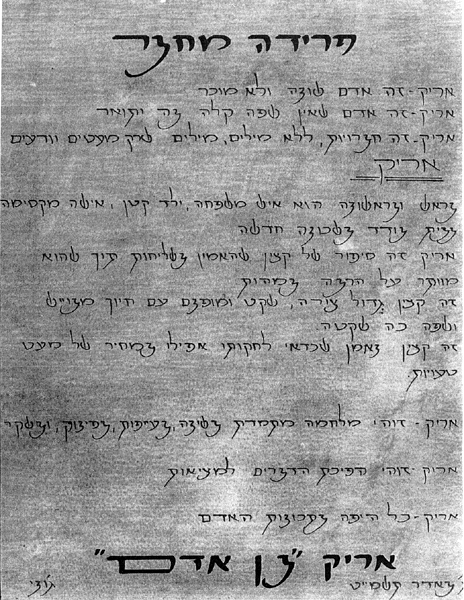 פרידה מחבר
אריק-זה אדם שונה ולא מוכר
אריק-זה אדם שאין שפה קלה בה יתואר
אריק-זה חברויות, ללא מילים, מילים שרק מעטים יודעים
אריק
בראש ובראשונה הוא איש משפחה, ילד קטן, אישה מקסימה
בבית בודד בשכונה חדשה
אריק זה סיפור של קצין שהאמין בשליחות תוך שהוא
מוותר על הרבה במהות
זה קצין גדול צורה, שקט ומופנם עם חיוך מבוייש
ושפה כה שקטה.
זה קצין נאמן שכדאי לחקותו אפילו במחיר של מעט
טעויות.
אריק-זוהי מלחמה מתמדת בשינה, בעייפות, בפינוק, ובשקר
אריק-זוהי הפיכת הדברים למציאות
אריק-כל היפה בתכונות האדם
אריק "בן אדם"
באדר תשמ"ט